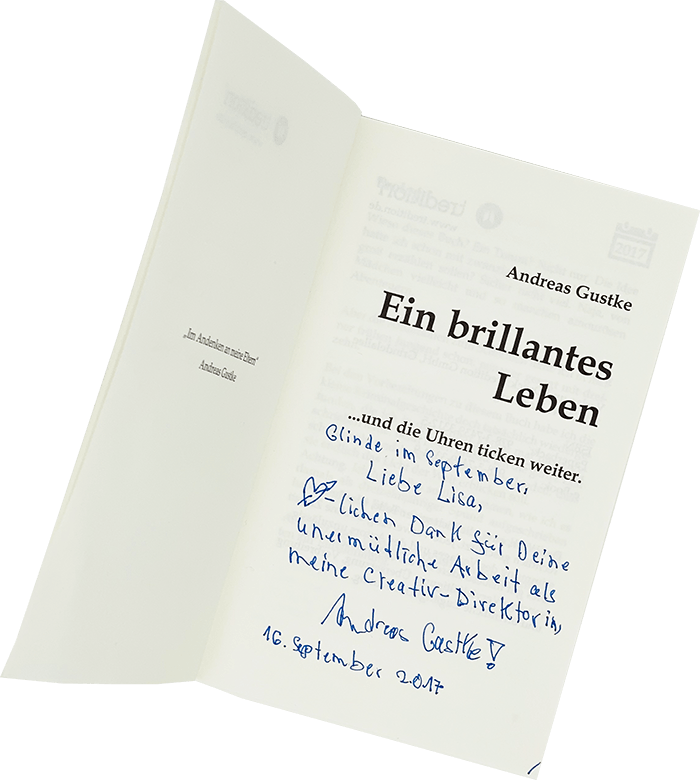 „Im Andenken an meine Eltern“
Andreas Gustke
tredition®
www.tredition.de
2017
Andreas Gustke
Ein brillantes
Leben
...und die Uhren ticken weiter.
Glinde im September,
Liebe Lisa,
-lichen Dank für Deine
unermütliche Arbeit als
meine Creativ-Direktorin,
Andreas Gustke!
16. September 2017